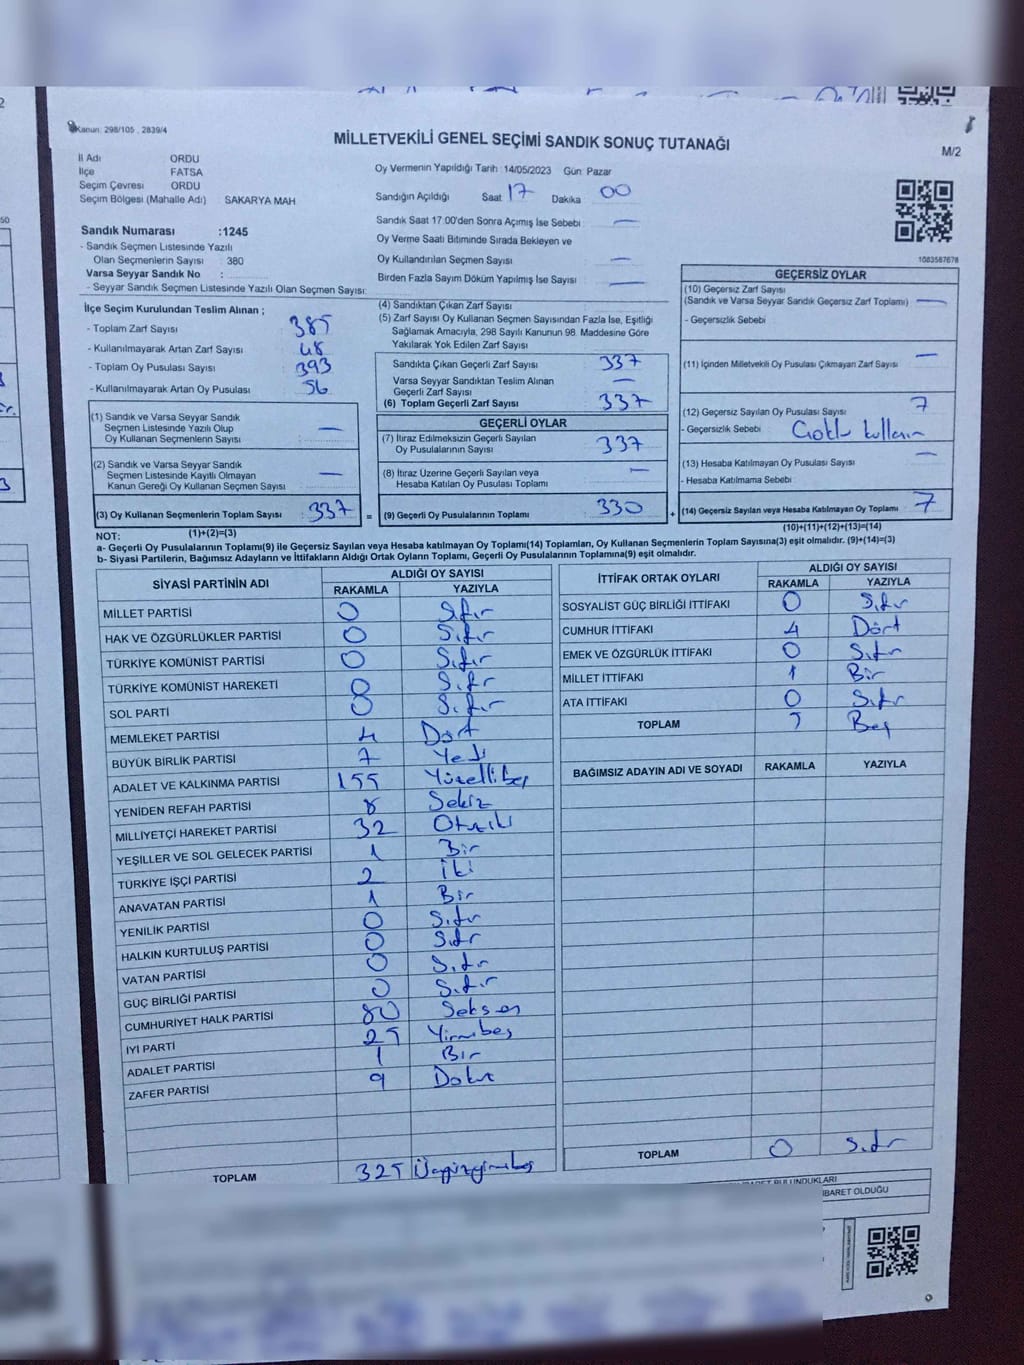 Kanun: 298/105 , 2839/4
MİLLETVEKİLİ GENEL SEÇİMİ SANDIK SONUÇ TUTANAĞI
M/2
İl Adı ORDU
İlçe FATSA
Seçim Çevresi ORDU
Seçim Bölgesi (Mahalle Adı) SAKARYA MAH
Oy Vermenin Yapıldığı Tarih : 14/05/2023 Gün: Pazar
Sandığın Açıldığı Saat 17 Dakika 00
Sandık Saat 17:00'den Sonra Açımış İse Sebebi —
Oy Verme Saati Bitiminde Sırada Bekleyen ve
Oy Kullandırılan Seçmen Sayısı —
Birden Fazla Sayım Döküm Yapılmış İse Sayısı —
1083587678
Sandık Numarası :1245
- Sandık Seçmen Listesinde Yazılı
Olan Seçmenlerin Sayısı : 380
Varsa Seyyar Sandık No :
- Seyyar Sandık Seçmen Listesinde Yazılı Olan Seçmen Sayısı:
İlçe Seçim Kurulundan Teslim Alınan ;
- Toplam Zarf Sayısı 385
- Kullanılmayarak Artan Zarf Sayısı 48
- Toplam Oy Pusulası Sayısı 393
- Kullanılmayarak Artan Oy Pusulası 56
(1) Sandık ve Varsa Seyyar Sandık
Seçmen Listesinde Yazılı Olup
Oy Kullanan Seçmenlerin Sayısı : —
(2) Sandık ve Varsa Seyyar Sandık
Seçmen Listesinde Kayıtlı Olmayan
Kanun Gereği Oy Kullanan Seçmen Sayısı : —
(3) Oy Kullanan Seçmenlerin Toplam Sayısı : 337 =
(4) Sandıktan Çıkan Zarf Sayısı
(5) Zarf Sayısı Oy Kullanan Seçmen Sayısından Fazla İse, Eşitliği
Sağlamak Amacıyla, 298 Sayılı Kanunun 98. Maddesine Göre
Yakılarak Yok Edilen Zarf Sayısı
Sandıkta Çıkan Geçerli Zarf Sayısı 337
Varsa Seyyar Sandıktan Teslim Alınan
Geçerli Zarf Sayısı —
(6) Toplam Geçerli Zarf Sayısı 337
GEÇERLİ OYLAR
(7) İtiraz Edilmeksizin Geçerli Sayılan
Oy Pusulalarının Sayısı 337
(8) İtiraz Üzerine Geçerli Sayılan veya
Hesaba Katılan Oy Pusulası Toplamı —
(9) Geçerli Oy Pusulalarının Toplamı 330 +
GEÇERSİZ OYLAR
(10) Geçersiz Zarf Sayısı
(Sandık ve Varsa Seyyar Sandık Geçersiz Zarf Toplamı) —
- Geçersizlik Sebebi
(11) İçinden Milletvekili Oy Pusulası Çıkmayan Zarf Sayısı —
(12) Geçersiz Sayılan Oy Pusulası Sayısı 7
- Geçersizlik Sebebi
(13) Hesaba Katılmayan Oy Pusulası Sayısı —
- Hesaba Katılmama Sebebi
(14) Geçersiz Sayılan veya Hesaba Katılmayan Oy Toplamı 7
NOT: (1)+(2)=(3) (10)+(11)+(12)+(13)=(14)
a- Geçerli Oy Pusulalarının Toplamı(9) ile Geçersiz Sayılan veya Hesaba katılmayan Oy Toplamı(14) Toplamları, Oy Kullanan Seçmenlerin Toplam Sayısına(3) eşit olmalıdır. (9)+(14)=(3)
b- Siyasi Partilerin, Bağımsız Adayların ve İttifakların Aldığı Ortak Oyların Toplamı, Geçerli Oy Pusulalarının Toplamına(9) eşit olmalıdır.
SİYASİ PARTİNİN ADI ALDIĞI OY SAYISI
RAKAMLA YAZIYLA
MİLLET PARTİSİ 0 Sıfır
HAK VE ÖZGÜRLÜKLER PARTİSİ 0 Sıfır
TÜRKİYE KOMÜNİST PARTİSİ 0 Sıfır
TÜRKİYE KOMÜNİST HAREKETİ 0 Sıfır
SOL PARTİ 0 Sıfır
MEMLEKET PARTİSİ 4 Dört
BÜYÜK BİRLİK PARTİSİ 7 Yedi
ADALET VE KALKINMA PARTİSİ 155 Yüzellibeş
YENİDEN REFAH PARTİSİ 8 Sekiz
MİLLİYETÇİ HAREKET PARTİSİ 32 Otuziki
YEŞİLLER VE SOL GELECEK PARTİSİ 1 Bir
TÜRKİYE İŞÇİ PARTİSİ 2 İki
ANAVATAN PARTİSİ 1 Bir
YENİLİK PARTİSİ 0 Sıfır
HALKIN KURTULUŞ PARTİSİ 0 Sıfır
VATAN PARTİSİ 0 Sıfır
GÜÇ BİRLİĞİ PARTİSİ 0 Sıfır
CUMHURİYET HALK PARTİSİ 80 Seksen
İYİ PARTİ 25 Yirmibeş
ADALET PARTİSİ 1 Bir
ZAFER PARTİSİ 9 Dokuz
TOPLAM 325 Üçyüzyirmibeş
İTTİFAK ORTAK OYLARI ALDIĞI OY SAYISI
RAKAMLA YAZIYLA
SOSYALİST GÜÇ BİRLİĞİ İTTİFAKI 0 Sıfır
CUMHUR İTTİFAKI 4 Dört
EMEK VE ÖZGÜRLÜK İTTİFAKI 0 Sıfır
MİLLET İTTİFAKI 1 Bir
ATA İTTİFAKI 0 Sıfır
TOPLAM 5 Beş
BAĞIMSIZ ADAYIN ADI VE SOYADI RAKAMLA YAZIYLA
TOPLAM 0 Sıfır
BULUNDUKLARI
İBARET OLDUĞU